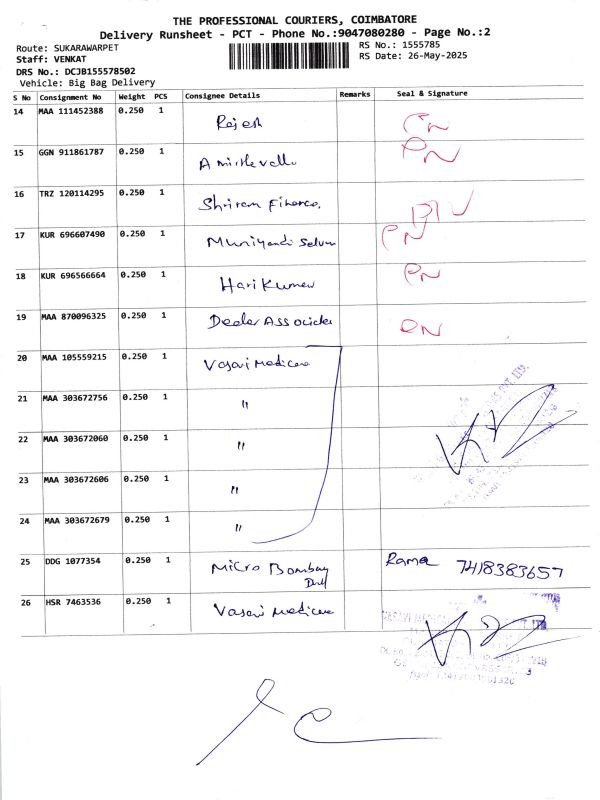 THE PROFESSIONAL COURIERS, COIMBATORE
Delivery Runsheet - PCT - Phone No.:9047080280 - Page No.:2
Route: SUKARAWARPET
RS No.: 1555785
Staff: VENKAT
RS Date: 26-May-2025
DRS No.: DCJB155578502
Vehicle: Big Bag Delivery
S No Consignment No Weight PCS Consignee Details Remarks Seal & Signature
14 MAA 111452388 0.250 1 Rajesh
15 GGN 911861787 0.250 1
16 TRZ 120114295 0.250 1 Shriram
17 KUR 696607490 0.250 1 Muniyandi Selvam
18 KUR 696566664 0.250 1 Hari Kumar
19 MAA 870096325 0.250 1
20 MAA 105559215 0.250 1 Vasavi Medicare
21 MAA 303672756 0.250 1 "
22 MAA 303672060 0.250 1 "
23 MAA 303672606 0.250 1 "
24 MAA 303672679 0.250 1 "
25 DDG 1077354 0.250 1 Micro Bombay Rama 7418383657
26 HSR 7463536 0.250 1 Vasavi Medicare